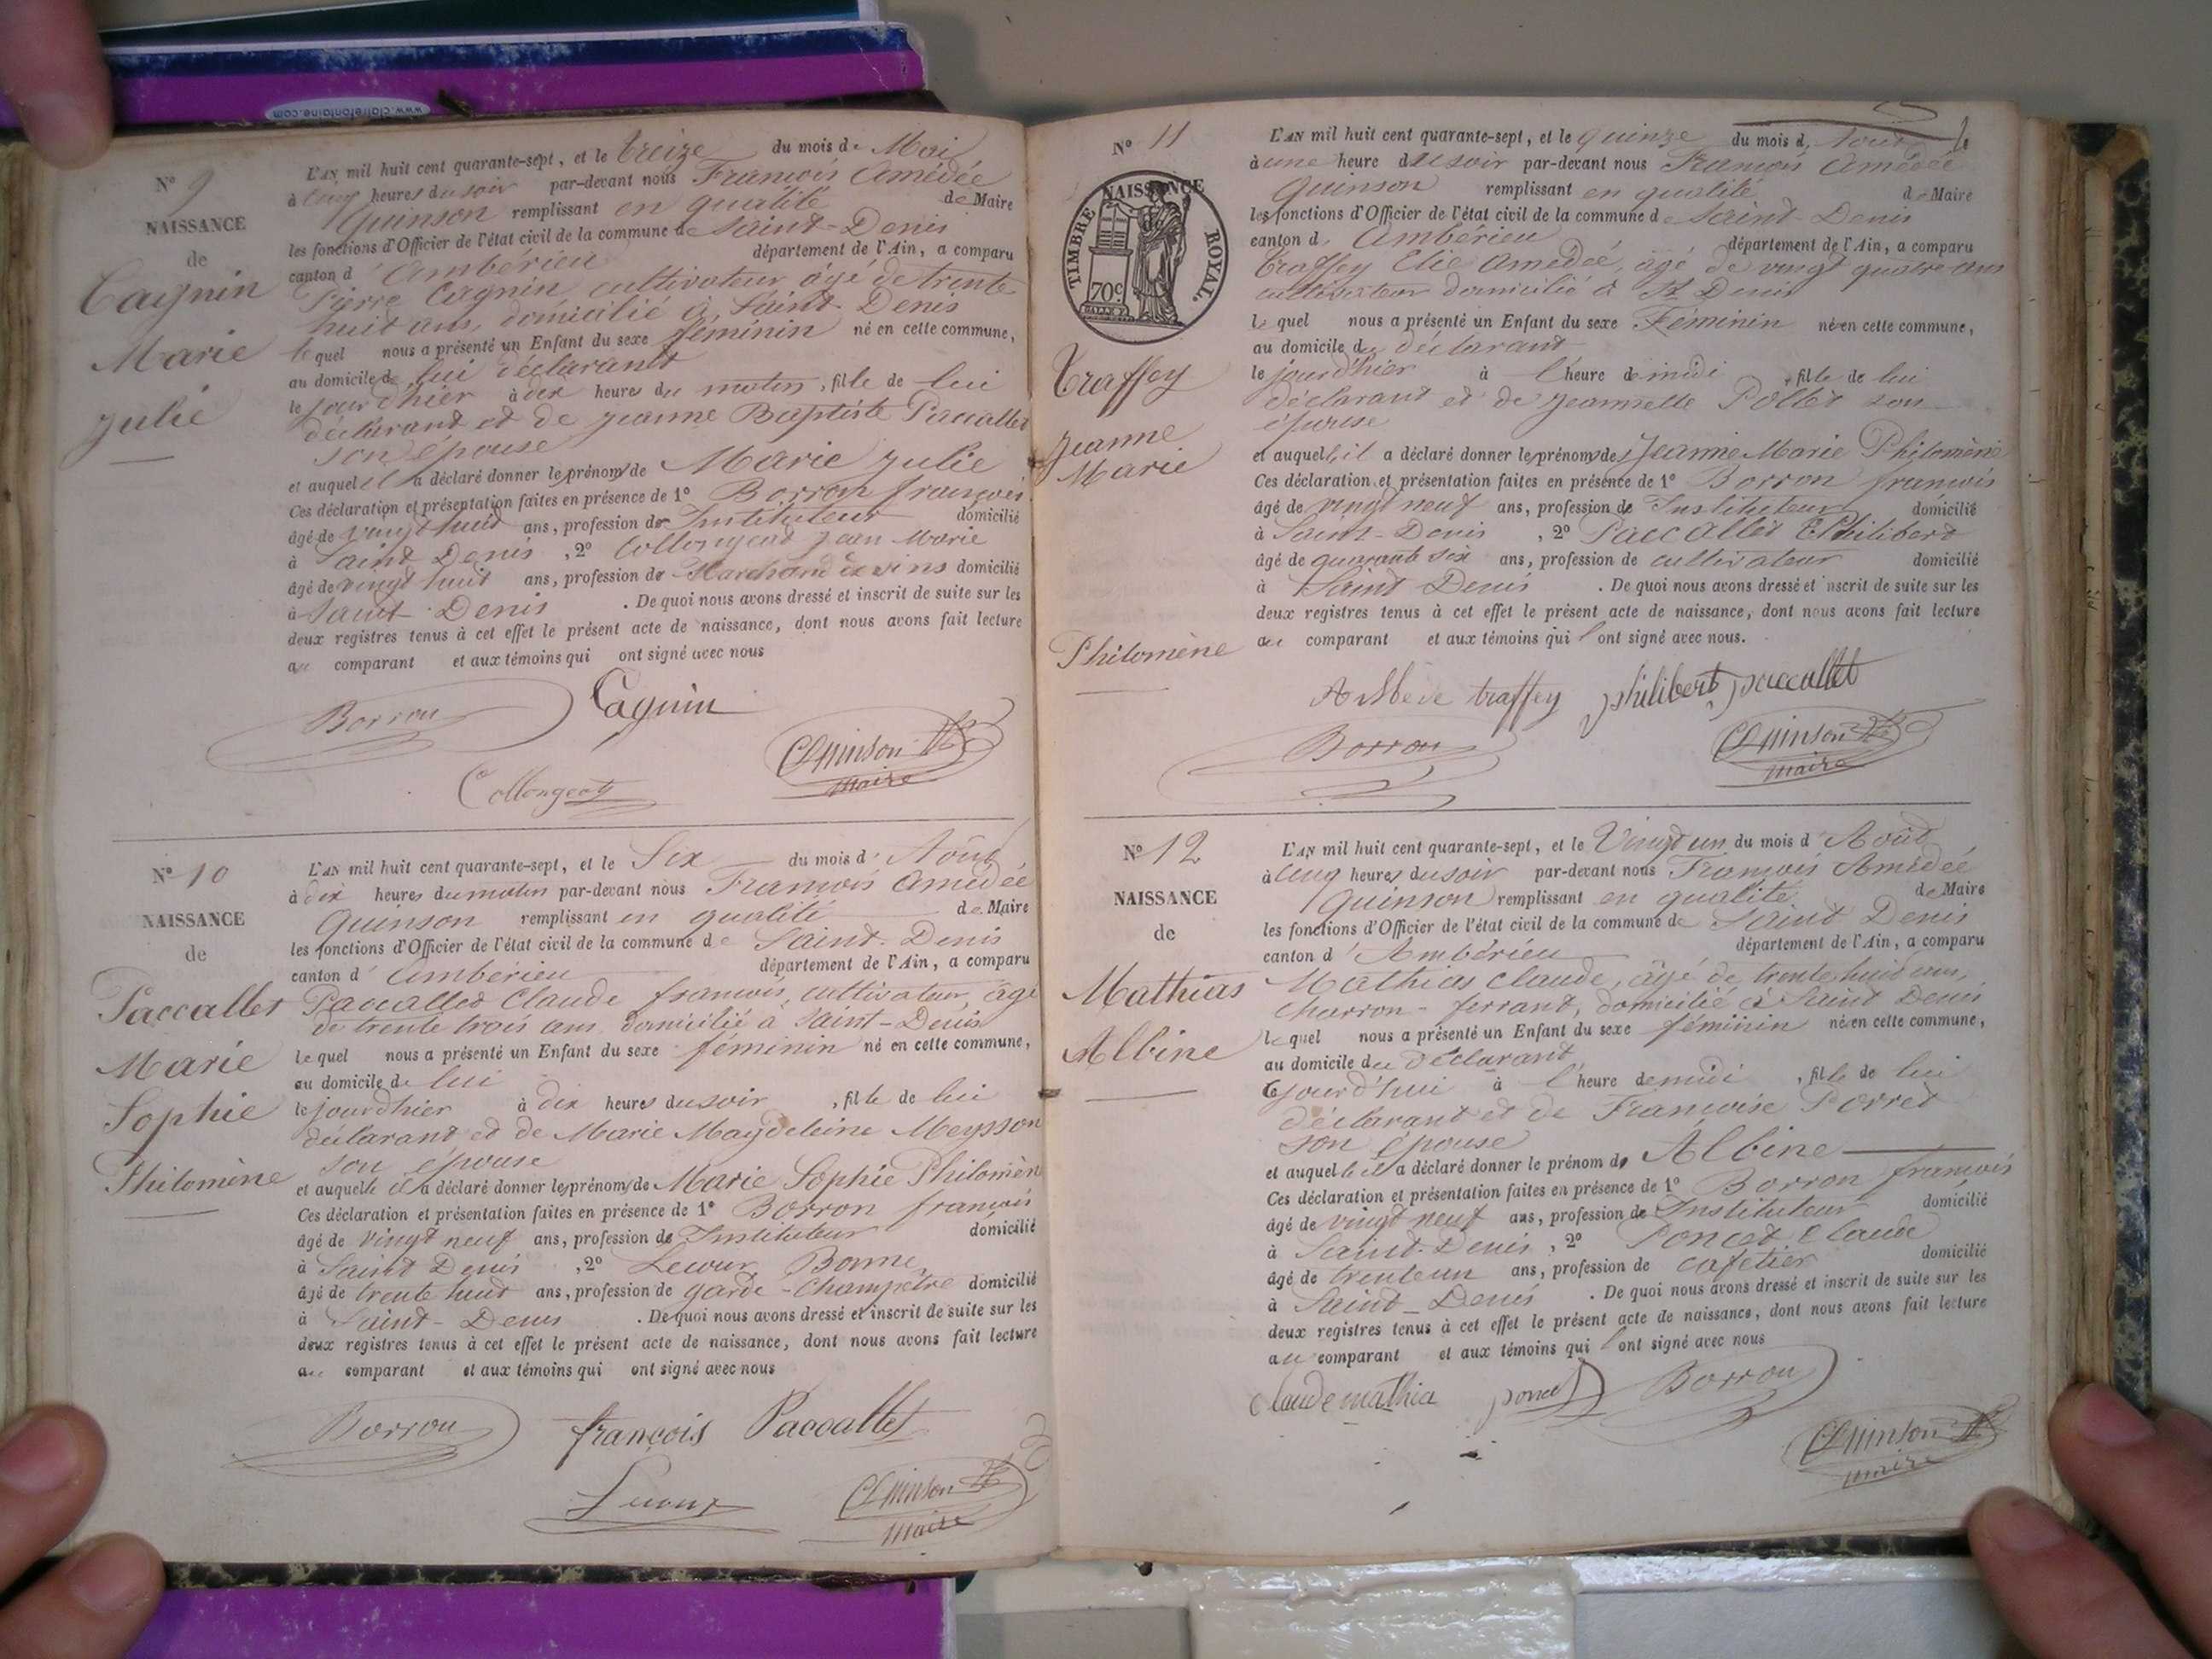 www.clairefontaine.com
N° 9
NAISSANCE
de
Cagnin
Marie
Julie
L'AN mil huit cent quarante-sept, et le treize du mois de Mai
à cinq heures du soir par-devant nous François Amédée
Quinson remplissant en qualité de Maire
les fonctions d'Officier de l'état civil de la commune de Saint-Denis
canton d'Ambérieu département de l'Ain, a comparu
Pierre Cagnin cultivateur âgé de trente
huit ans, domicilié à Saint-Denis
lequel nous a présenté un Enfant du sexe féminin né en cette commune,
au domicile de lui déclarant
le jour d'hier à dix heures du matin, fille de lui
déclarant et de Jeanne Baptiste Paccallet
son épouse
et auquel il a déclaré donner les prénoms de Marie Julie
Ces déclaration et présentation faites en présence de 1° Borron françois
âgé de vingt huit ans, profession de Instituteur domicilié
à Saint Denis, 2° Collongeat Jean Marie
âgé de vingt huit ans, profession de Marchand de vins domicilié
à Saint-Denis. De quoi nous avons dressé et inscrit de suite sur les
deux registres tenus à cet effet le présent acte de naissance, dont nous avons fait lecture
au comparant et aux témoins qui ont signé avec nous
Borron Cagnin
Collongeat Quinson
maire
N° 10
NAISSANCE
de
Paccallet
Marie
Sophie
Philomène
L'AN mil huit cent quarante-sept, et le Six du mois d'Août
à dix heures du matin par-devant nous François Amédée
Quinson remplissant en qualité de Maire
les fonctions d'Officier de l'état civil de la commune de Saint-Denis
canton d'Ambérieu département de l'Ain, a comparu
Paccallet Claude françois, cultivateur, âgé
de trente trois ans domicilié à Saint-Denis
lequel nous a présenté un Enfant du sexe féminin né en cette commune,
au domicile de lui
le jour d'hier à dix heures du soir, fille de lui
déclarant et de Marie Magdeleine Meysson
son épouse
et auquelle il a déclaré donner les prénoms de Marie Sophie Philomène
Ces déclaration et présentation faites en présence de 1° Borron françois
âgé de vingt neuf ans, profession de Instituteur domicilié
à Saint Denis, 2° Lecour Bonne
âgé de trente huit ans, profession de garde-Champêtre domicilié
à Saint-Denis. De quoi nous avons dressé et inscrit de suite sur les
deux registres tenus à cet effet le présent acte de naissance, dont nous avons fait lecture
au comparant et aux témoins qui ont signé avec nous
Borron françois Paccallet
Quinson
maire
N° 11
NAISSANCE
TIMBRE ROYAL.
70c
Traffey
Jeanne
Marie
Philomène
L'AN mil huit cent quarante-sept, et le quinze du mois d'Août
à une heure du soir par-devant nous François Amédée
Quinson remplissant en qualité de Maire
les fonctions d'Officier de l'état civil de la commune de Saint-Denis
canton d'Ambérieu département de l'Ain, a comparu
Traffey Elie Amédée, âgé de vingt quatre ans
cultivateur domicilié à St Denis
lequel nous a présenté un Enfant du sexe Féminin née en cette commune,
au domicile du déclarant
le jour d'hier à l'heure de midi, fille de lui
déclarant et de Jeannette Pollet son
épouse
et auquelle il a déclaré donner les prénoms de Jeanne Marie Philomène
Ces déclaration et présentation faites en présence de 1° Borron françois
âgé de vingt neuf ans, profession de Instituteur domicilié
à Saint-Denis, 2° Paccallet Philibert
âgé de quarante six ans, profession de cultivateur domicilié
à Saint Denis. De quoi nous avons dressé et inscrit de suite sur les
deux registres tenus à cet effet le présent acte de naissance, dont nous avons fait lecture
au comparant et aux témoins qui l'ont signé avec nous.
traffey philibert paccallet
Borron Quinson
maire
N° 12
NAISSANCE
de
Mathias
Albine
L'AN mil huit cent quarante-sept, et le Vingt un du mois d'Août
à cinq heures du soir par-devant nous François Amédée
Quinson remplissant en qualité de Maire
les fonctions d'Officier de l'état civil de la commune de Saint Denis
canton d'Ambérieu département de l'Ain, a comparu
Mathias Claude, âgé de trente huit ans,
charron-ferrant, domicilié à Saint Denis
lequel nous a présenté un Enfant du sexe féminin née en cette commune,
au domicile du déclarant
cejourd'hui à l'heure de midi, fille de lui
déclarant et de Françoise Porret
son épouse
et auquelle il a déclaré donner le prénom de Albine
Ces déclaration et présentation faites en présence de 1° Borron françois
âgé de vingt neuf ans, profession de Instituteur domicilié
à Saint-Denis, 2° Poncet Claude
âgé de trente un ans, profession de cafetier domicilié
à Saint-Denis. De quoi nous avons dressé et inscrit de suite sur les
deux registres tenus à cet effet le présent acte de naissance, dont nous avons fait lecture
au comparant et aux témoins qui l'ont signé avec nous
claude mathia poncet Borron
Quinson
maire